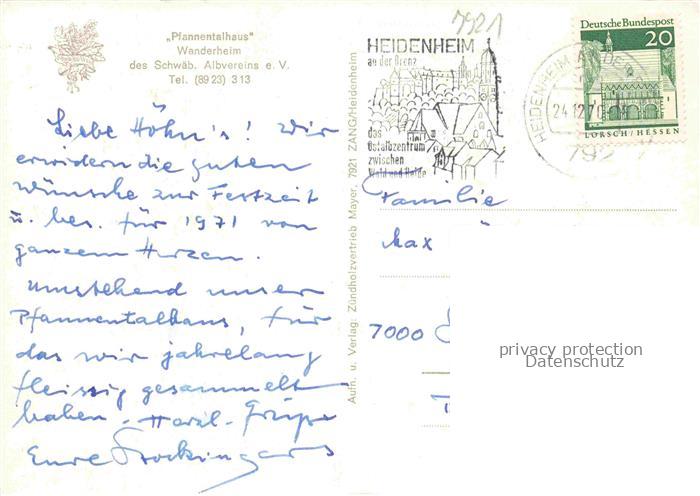 „Pfannentalhaus"
Wanderheim
des Schwäb. Albvereins e. V.
Tel. (89 23) 3 13
Liebe Höhn's! Wir
erwidern die guten
Wünsche zur Festzeit
u. bes. für 1971 von
ganzem Herzen.
Umstehend unser
Pfannentalhaus, für
das wir jahrelang
fleissig gesammelt
haben. Herzl. Grüße
Eure
Aufn. u. Verlag: Zündholzvertrieb Mayer, 7921 ZANG/Heidenheim
7921
HEIDENHEIM
an der Brenz
das
Ostalbzentrum
zwischen
Wald und Heide
HEIDENHEIM AN DER
24.12.70
792
Deutsche Bundespost
20
LORSCH/HESSEN
Familie
Max
7000
privacy protection
Datenschutz